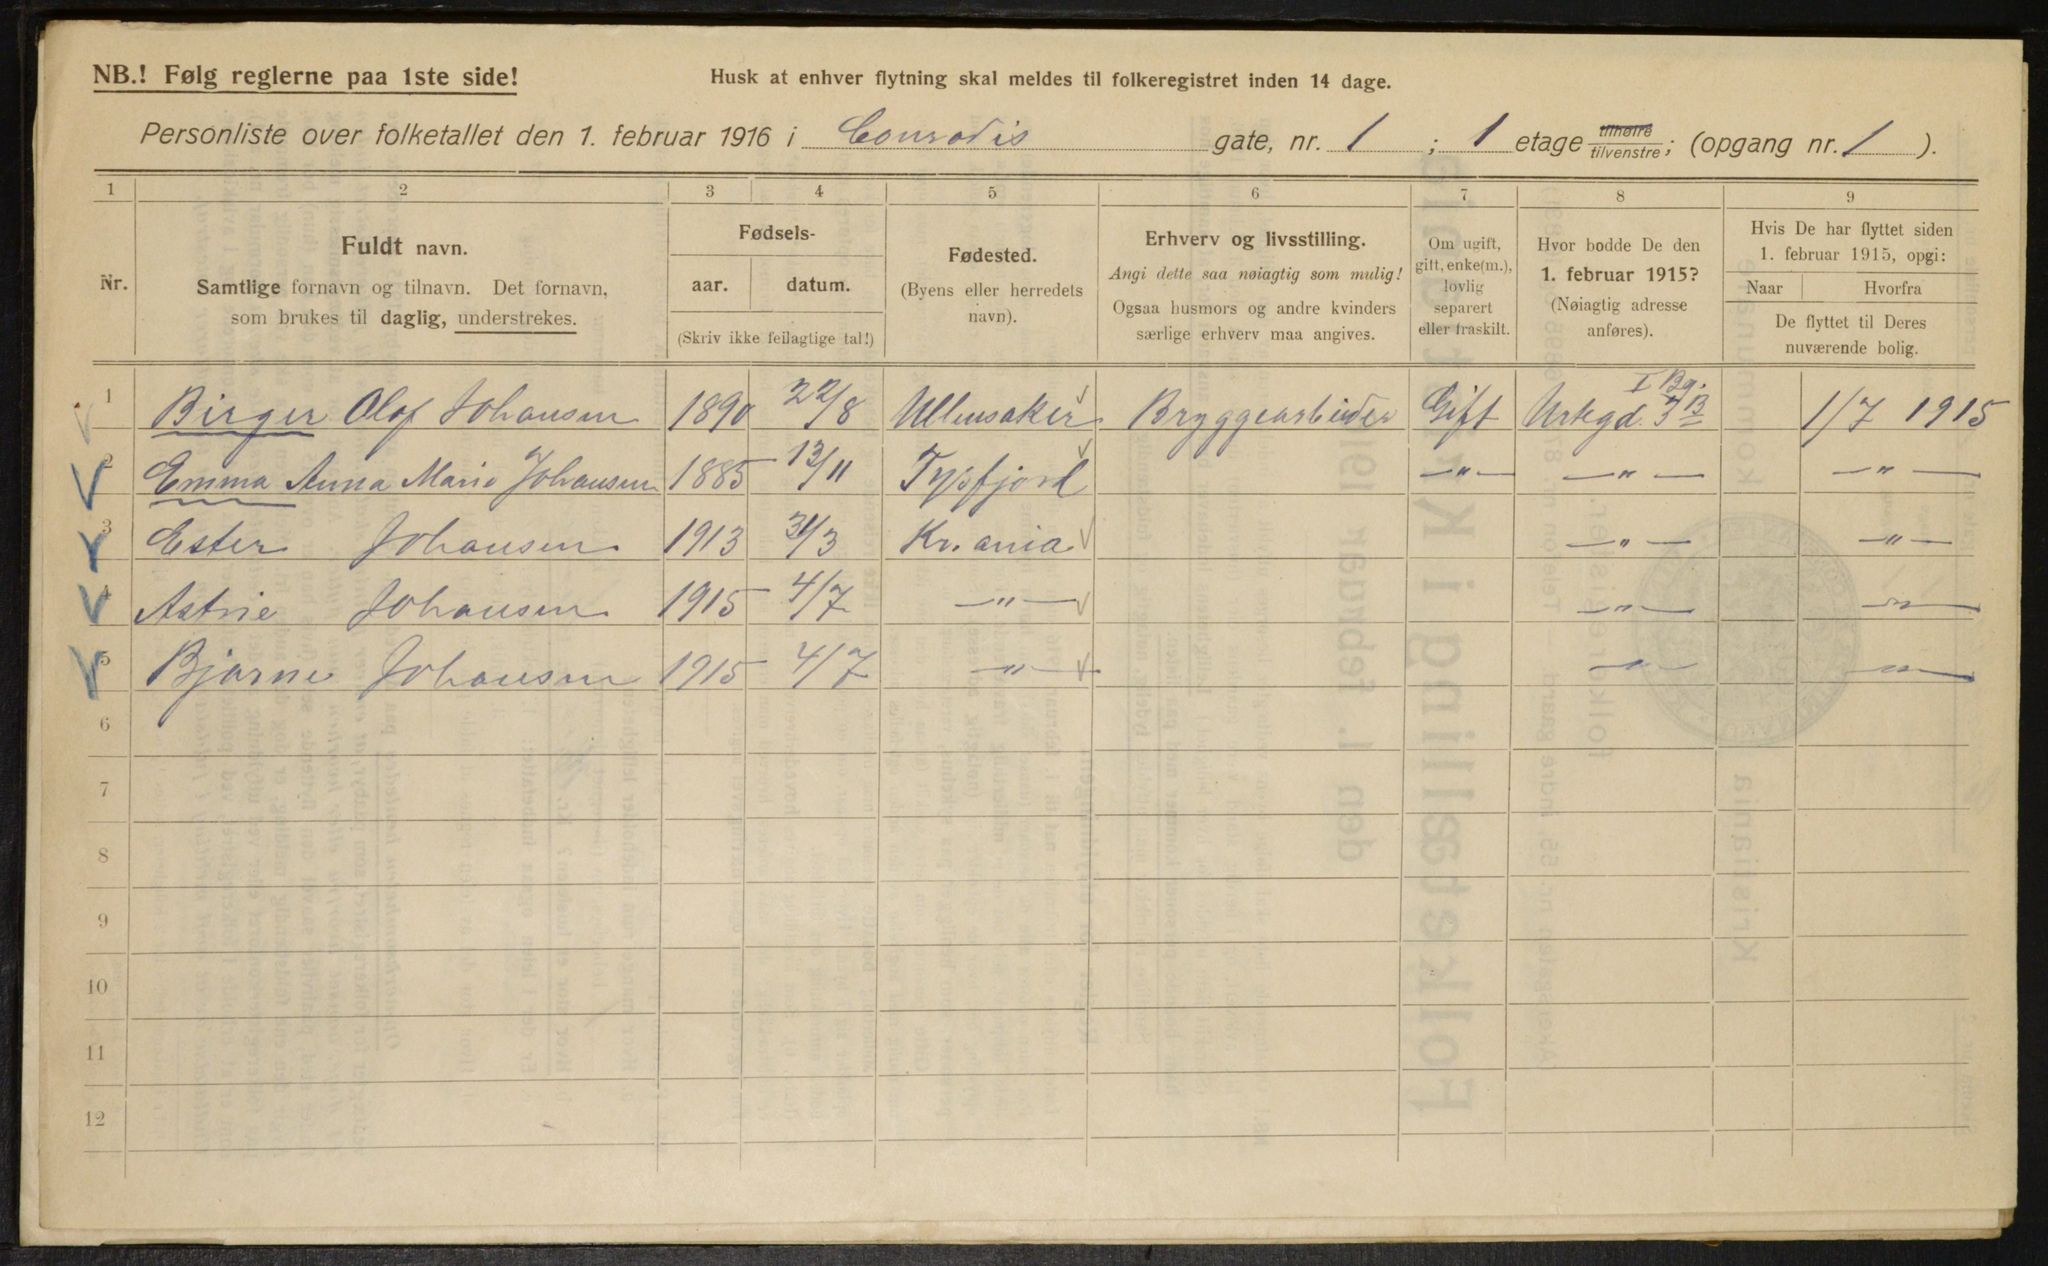 NB.! Følg reglerne paa 1ste side!
Husk at enhver flytning skal meldes til folkeregistret inden 14 dage.
Personliste over folketallet den 1. februar 1916 i Conradis gate, nr. 1 ; 1 etage tilhøire tilvenstre; (opgang nr. 1 ).
1 2 3 4 5 6 7 8 9
Nr.
Fuldt navn.
Samtlige fornavn og tilnavn. Det fornavn,
som brukes til daglig, understrekes.
Fødsels-
aar. datum.
(Skriv ikke feilagtige tal!)
Fødested.
(Byens eller herredets
navn).
Erhverv og livsstilling.
Angi dette saa nøiagtig som mulig!
Ogsaa husmors og andre kvinders
særlige erhverv maa angives.
Om ugift,
gift, enke(m.),
lovlig
separert
eller fraskilt.
Hvor bodde De den
1. februar 1915?
(Nøiagtig adresse
anføres).
Hvis De har flyttet siden
1. februar 1915, opgi:
Naar Hvorfra
De flyttet til Deres
nuværende bolig.
1 Birger Olof Johansen 1890 22/8 Ullensaker Bryggearbeider Gift Urtegd. 3 B I Bg. 1/7 1915
2 Emma Anna Marie Johansen 1885 13/11 Tysfjord —"— —"— —"—
3 Ester Johansen 1913 31/3 Kr.ania —"— —"—
4 Astrie Johansen 1915 4/7 —"— —"— —"—
5 Bjarne Johansen 1915 4/7 —"— —"— —"—
6
7
8
9
10
11
12